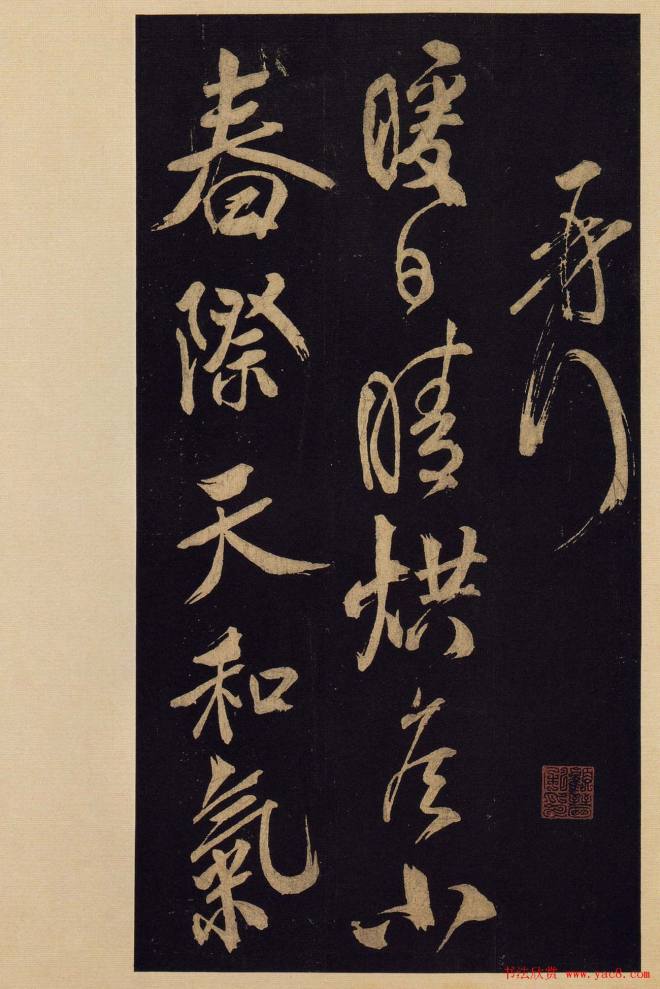 行
暖日晴烘候小
春際天和氣
书法欣赏 www.yac8.com